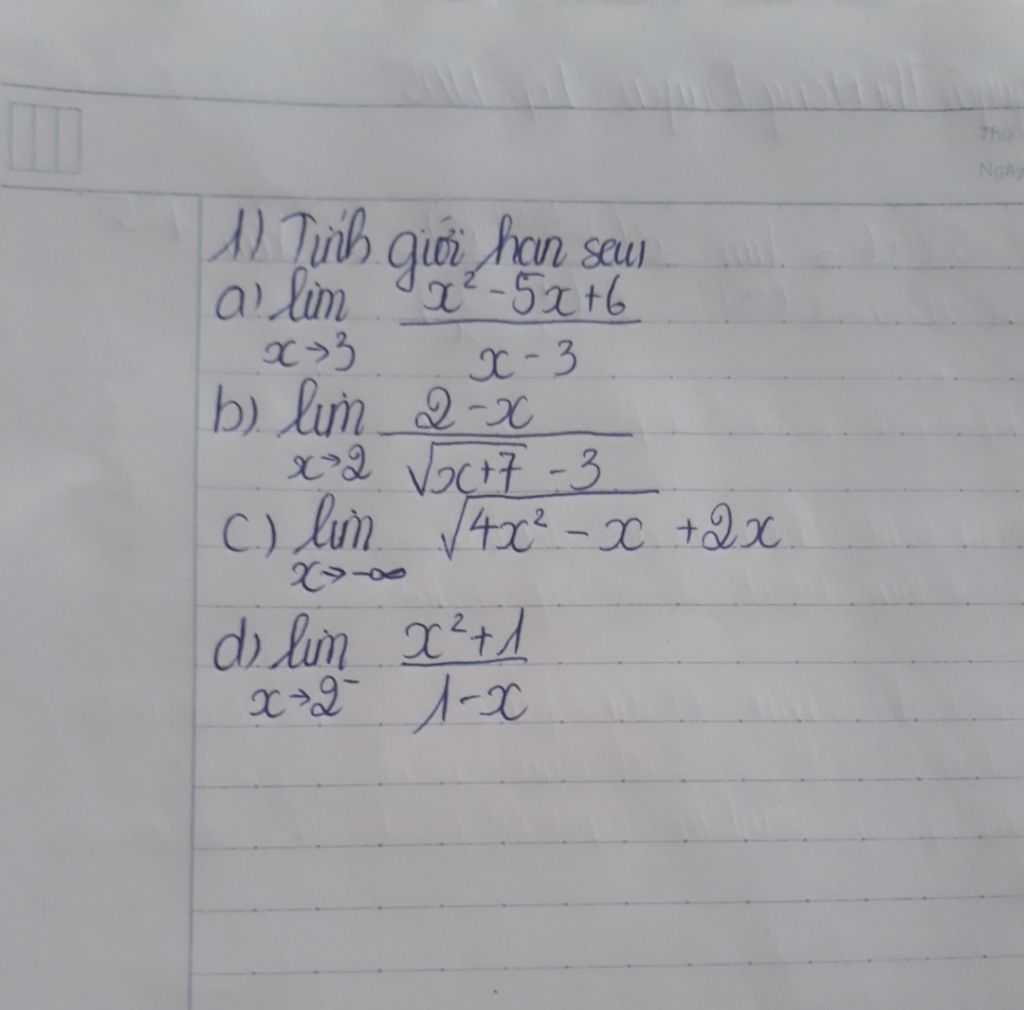 Thứ
Ngày
1) Tính giới hạn sau
a) lim x²-5x+6
x→3 x-3
b) lim 2-x
x→2 √x+7 -3
c) lim √4x²-x +2x
x→-∞
d) lim x²+1
x→2⁻ 1-x